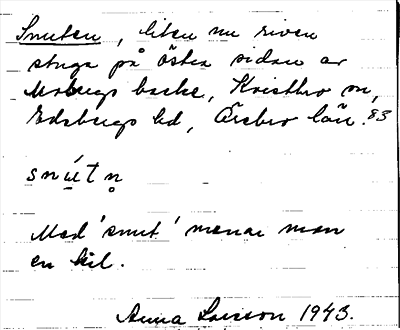 Snuten, liten nu riven
stuga på östra sidan av
Mobergs backe, Kvistbro sn,
Edsbergs hd, Örebro län. 83
snútn̥
Med 'snut' menar man
en kil.
Anna Larsson 1943.